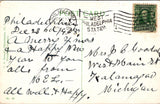 Philadelphia
Dec 23rd
A Merry Xmas
and a Happy New
Year to you
all also
M.E.L.
All well & Happy
PHILADELPHIA
STATION
Mrs
West Main St
Kalamazoo
Michigan